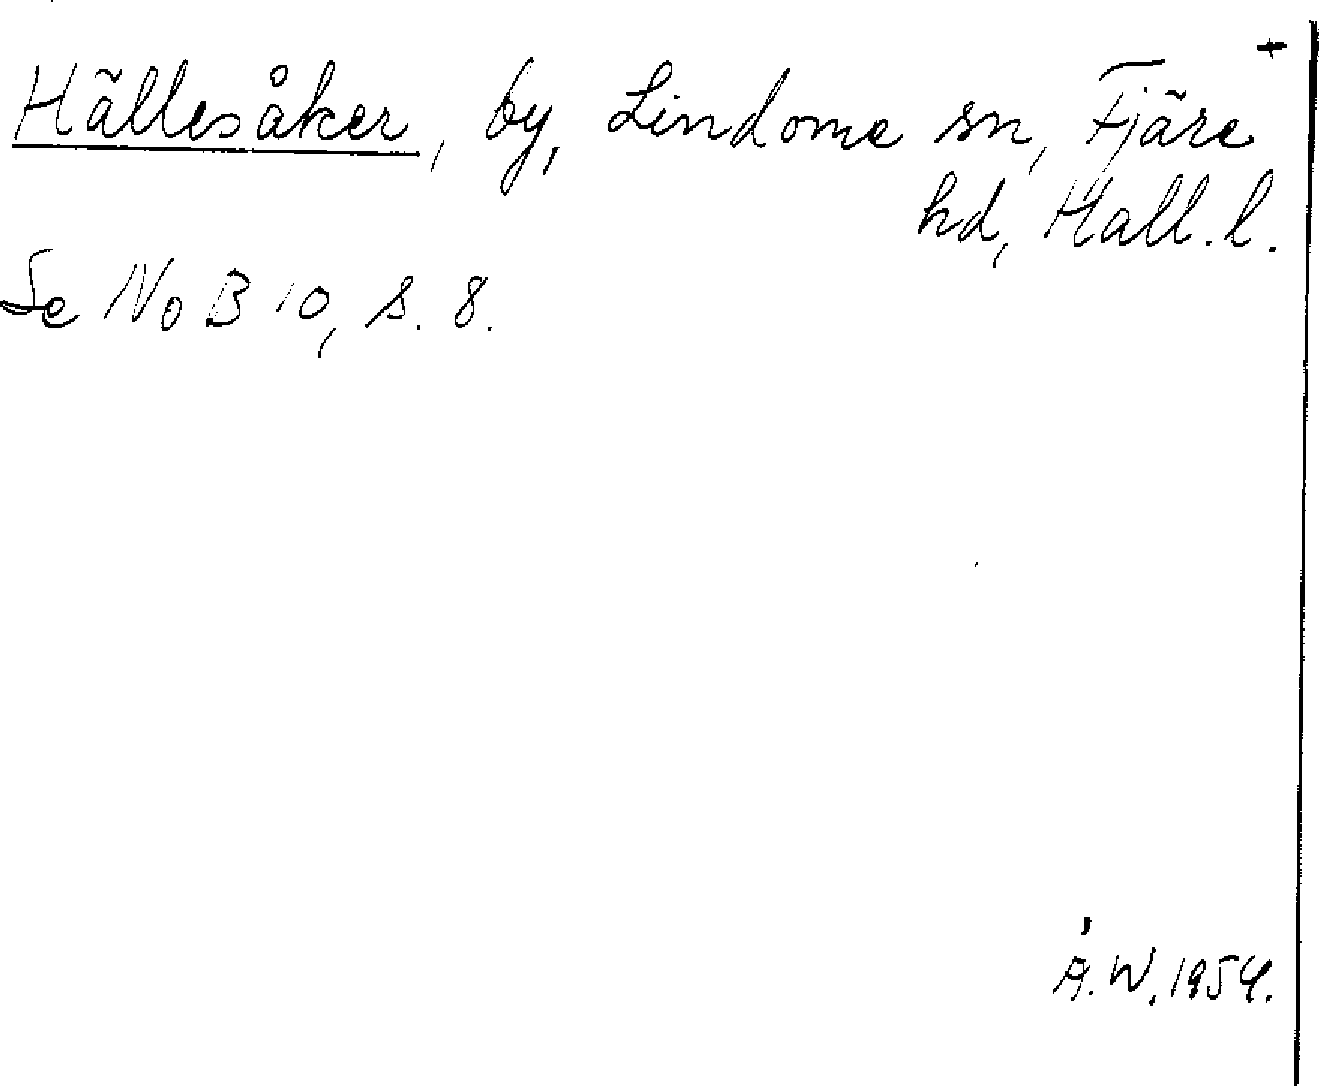 Hällesåker, by, Lindome sn, Fjäre
hd, Hall. l.
Se NoB 10, s. 8.
Å.W. 1954.